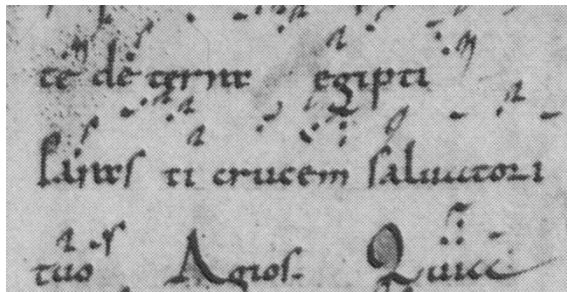 te de terra egipti
paras ti crucem saluatori
tuo Agios. Quia